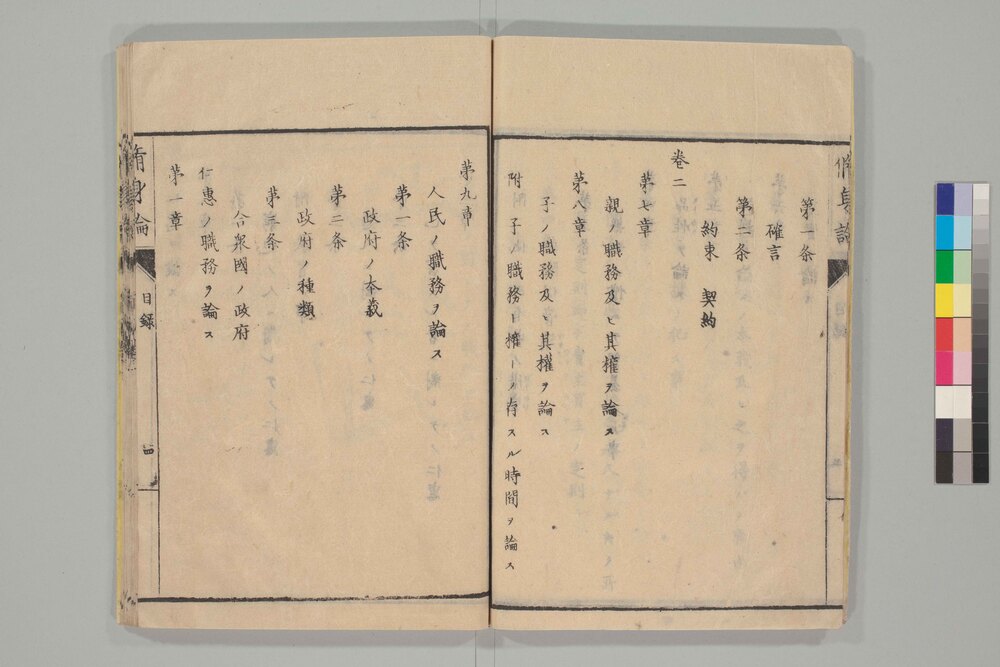 第一条
確言
第二条
約束 契約
巻二
第七章
親ノ職務及ヒ其權ヲ論ス
第八章
子ノ職務及ヒ其權ヲ論ス
附 子ノ職務ト權トノ存スル時間ヲ論ス
第九章
人民ノ職務ヲ論ス
第一条
政府ノ本義
第二条
政府ノ種類
第三条
合衆國ノ政府
仁惠ノ職務ヲ論ス
第一章
脩身論
目録
四